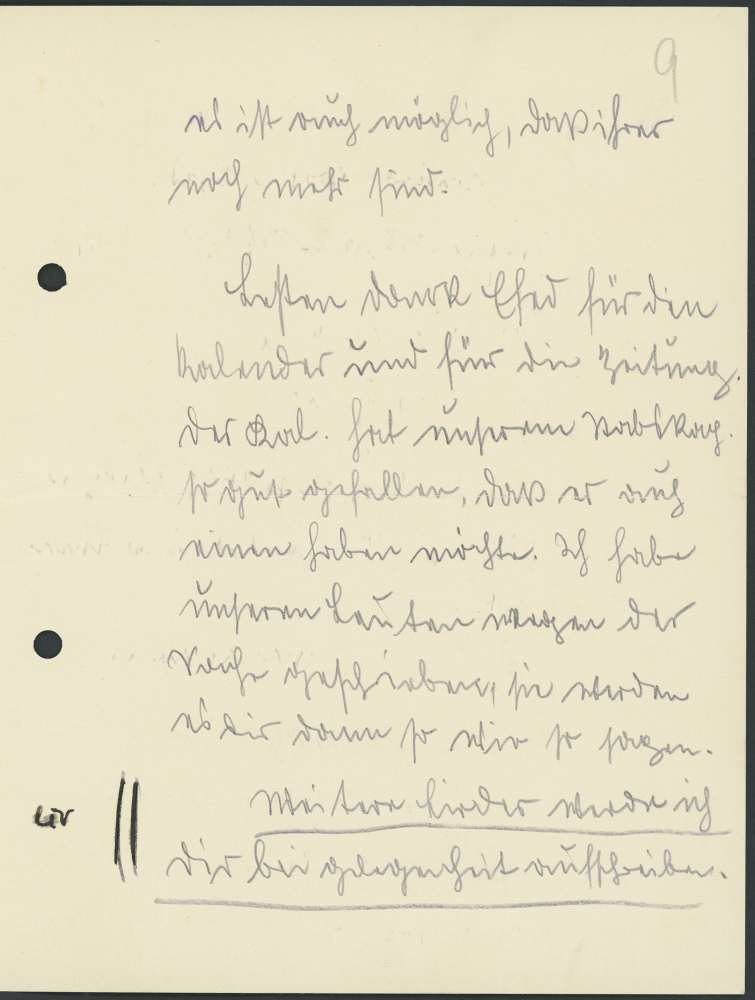 9
es ist auch möglich, daß ihrer
noch mehr sind.
Besten Dank Ehed für den
Kalender und für die Zeitung.
Der Kal. hat unserem Stabskap.
so gut gefallen, daß er auch
einen haben möchte. Ich habe
unseren Leuten wegen der
Sache geschrieben, sie werden
es dir dann so wie so sagen.
Weitere Lieder werde ich
dir bei gelegenheit aufschreiben.